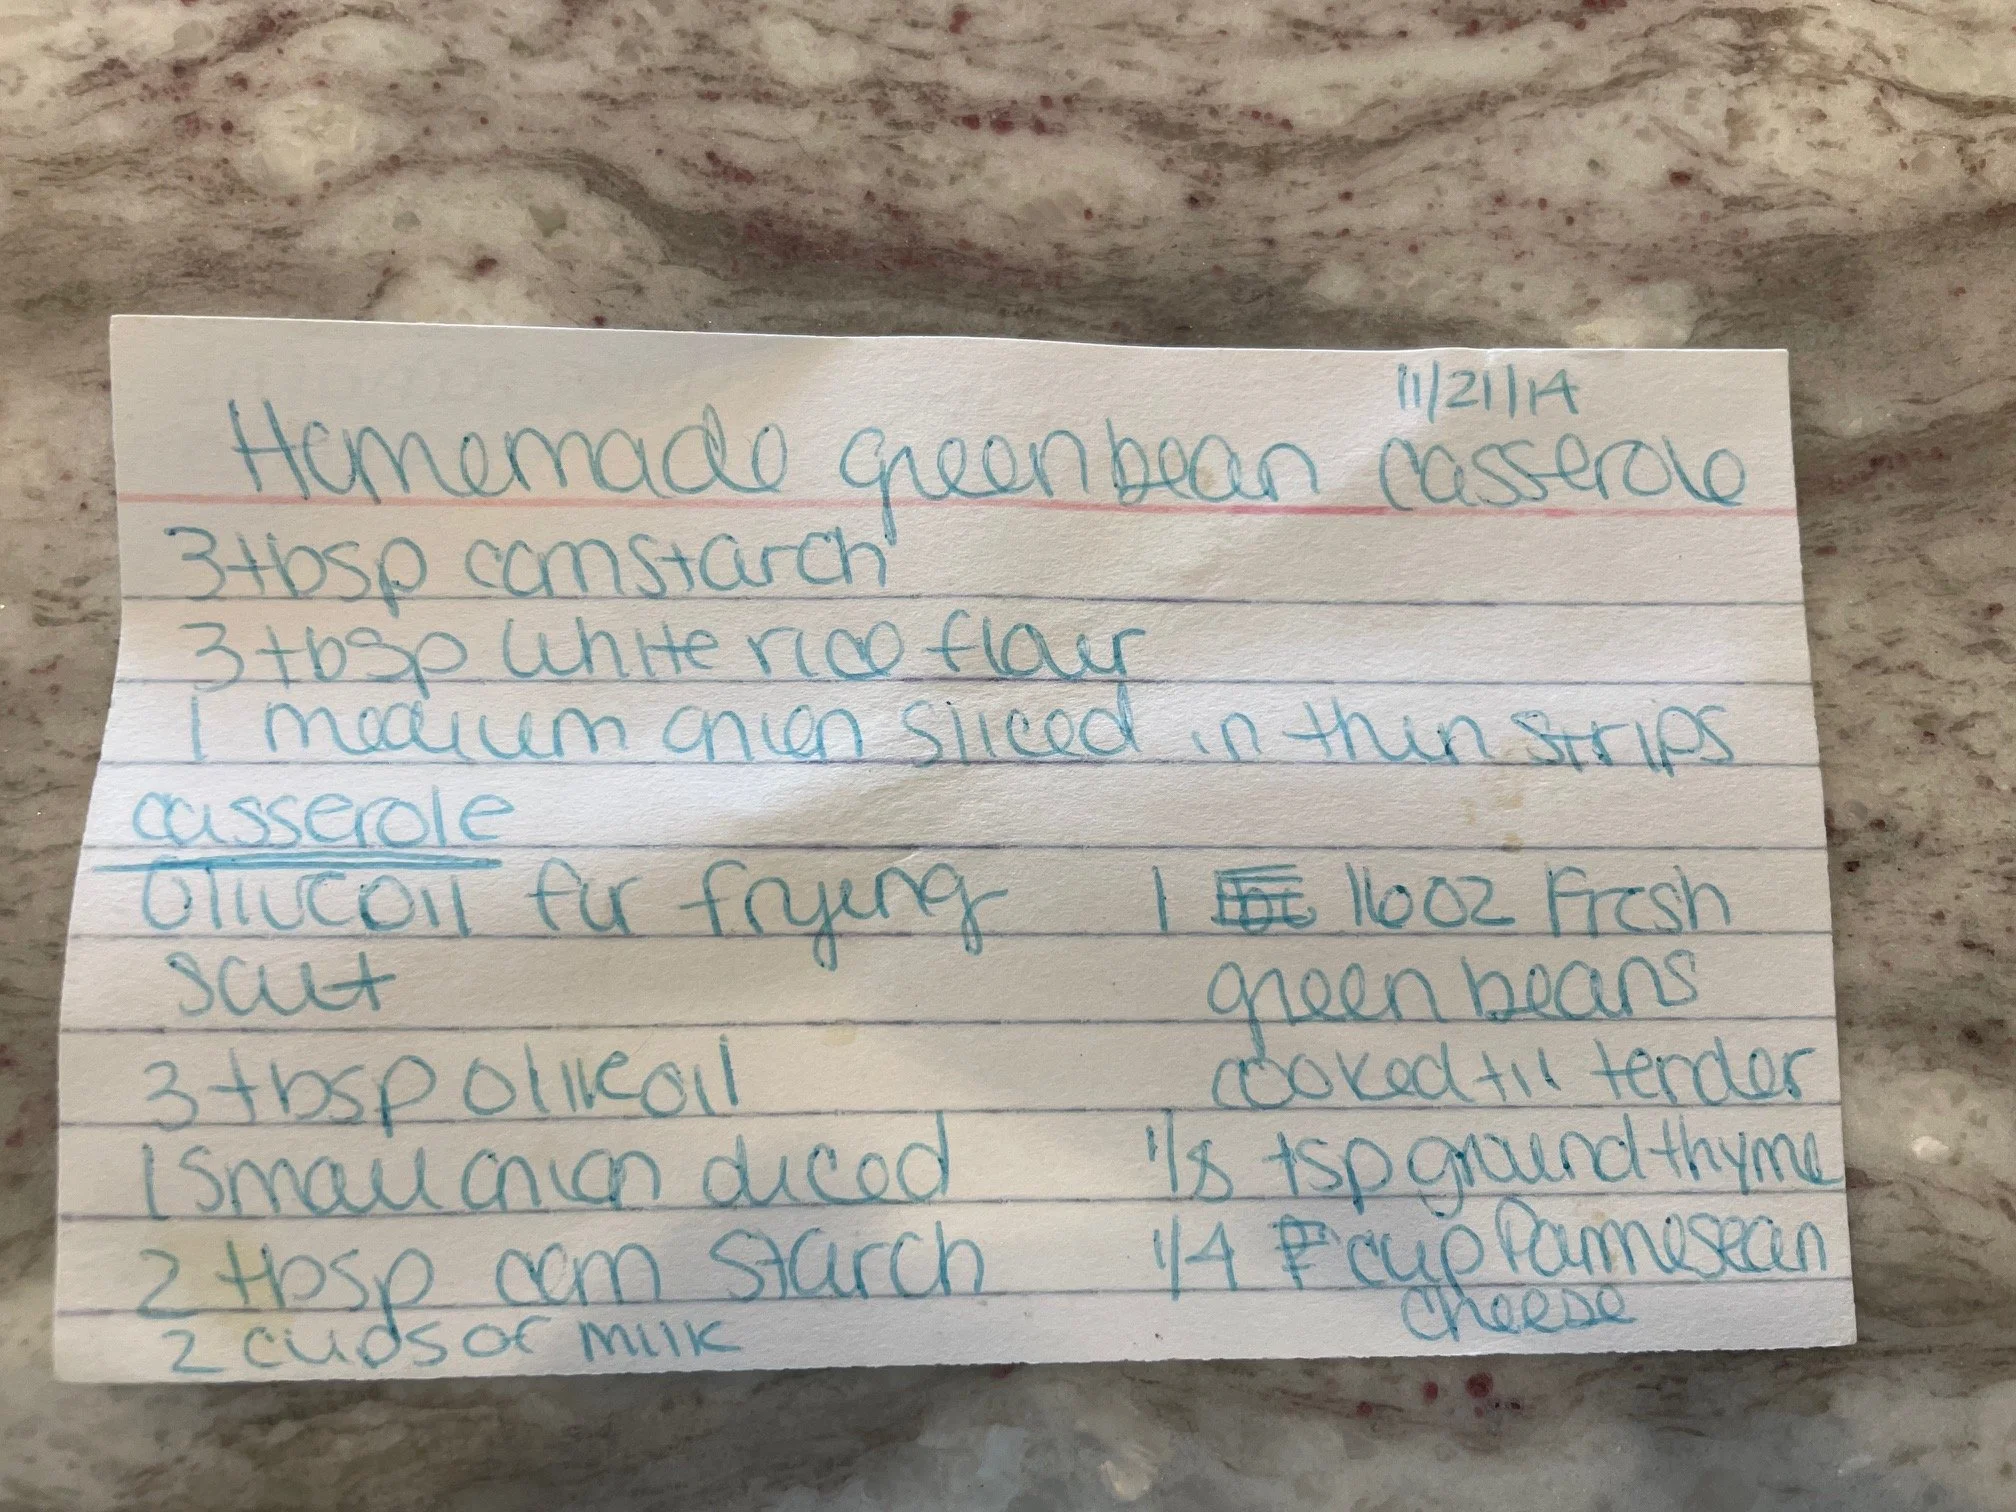 11/21/14
Homemade green bean casserole
3 tbsp cornstarch
3 tbsp white rice flour
1 medium onion sliced in thin strips
casserole
Olive oil for frying
salt
3 tbsp olive oil
1 small onion diced
2 tbsp corn starch
2 cups of milk
1 16 oz Fresh
green beans
cooked til tender
1/8 tsp ground thyme
1/4 cup Parmesean
cheese